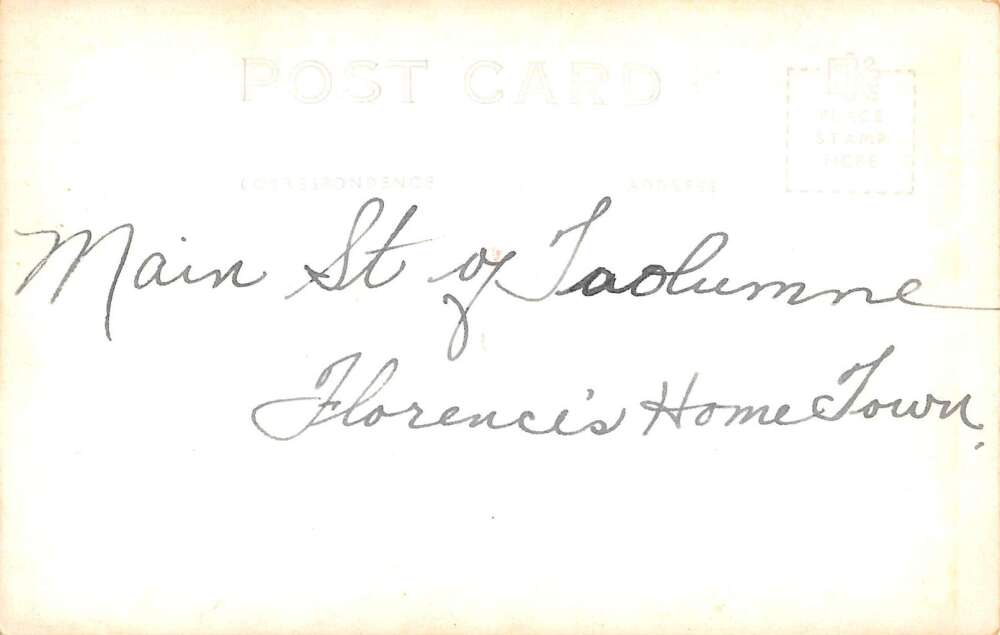 POST CARD
PLACE
STAMP
HERE
CORRESPONDENCE
ADDRESS
Main St of Taolumne
Florence's Home Town.